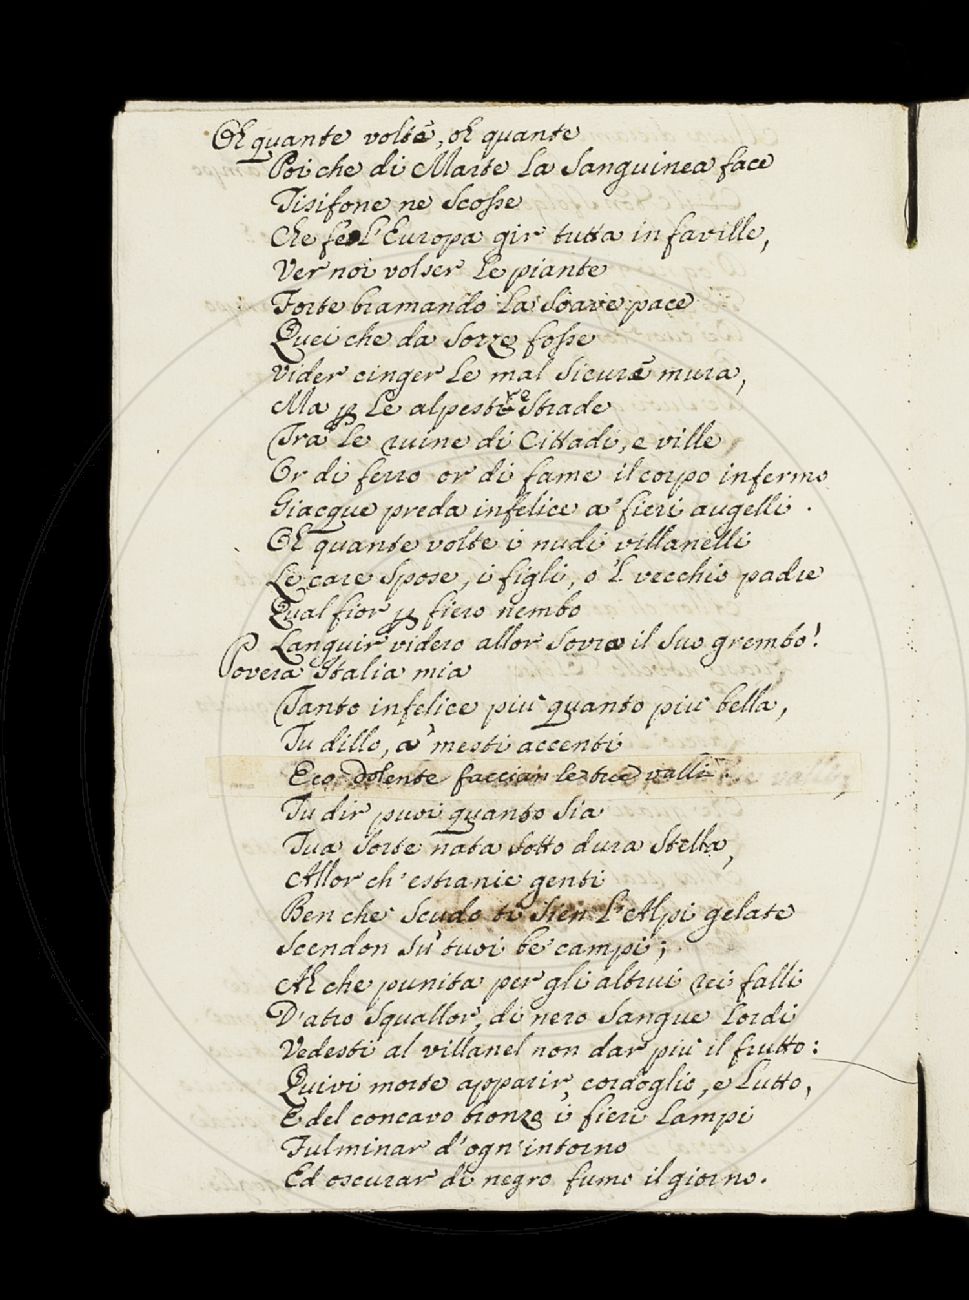 Oh quante volte, oh quante
Poi che di Marte la sanguinea face
Tisifone ne scosse
Che feo l'Europa gir tutta in faville,
Ver noi volser le piante
Forte bramando la soave pace
Quei che da sozze fosse
Vider cinger le mal sicure mura,
Ma p le alpestre strade
Tra le ruine di Cittadi, e ville
Or di ferro or di fame il corpo infermo
Giacque preda infelice a' fieri augelli.
Oh quante volte i nudi villanelli
Le care spose, i figli, o 'l vecchio padre
Qual fior p fiero nembo
Languir videro allor sovra il suo grembo!
Povera Italia mia
Tanto infelice più quanto più bella,
Tu dillo, a' mesti accenti
Eco dolente faccian le tue valli.
Tu dir puoi quanto sia
Tua sorte nata sotto dura stella,
Allor ch' estranie genti
Ben che scudo ti sien l'Alpi gelate
Scendon su' tuoi be' campi;
Ah che punita per gli altrui rei falli
D'atro squallor, di nero sangue lordi
Vedesti al villanel non dar più il frutto:
Quivi morte apparir, cordoglio, e lutto,
E del concavo bronzo i fieri lampi
Fulminar d'ogn'intorno
Ed oscurar di negro fumo il giorno.